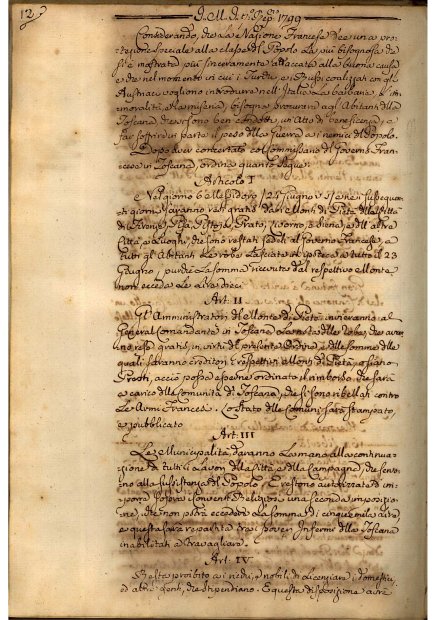 12
1799
Considerando, che la Nazione Francese dee una pro
tezione speciale alla classe del Popolo la più bisognosa che
si è mostrata più sinceramente attaccata alla buona causa
e che nel momento in cui i Turchi, e i Russi coalizzati con gli
Austriaci vogliono introdurre nell'Italia la barbarie, l'im
moralità, e la miseria, bisogna procurare agli Abitanti della
Toscana, che si sono ben condotti, un Atto di beneficenza, e
far soffrire in parte il peso della Guerra a i nemici del Popolo.
Dopo aver concertato col Commissario del Governo Fran
cese in Toscana, ordina quanto segue.
Articolo I
Nel giorno 6 Messidoro /24 Giugno/ e nei susseguen
ti giorni saranno resi gratis dai Monti di Pietà della Città
di Firenze, Pisa, Pistoja, Prato, Livorno, e Siena, e dell'altre
Città, e Luoghi, che sono restati fedeli al Governo Francese, a
tutti gli Abitanti le robe lasciate in ipoteca a tutto il 23
Giugno, purchè la somma ricevuta dal respettivo Monte
non ecceda le lire dieci
Art: II
Gl'Amministratori del Monte di Pietà invieranno al
General Comandante in Toscana la nota delle robe, che avran
no rese gratis, in virtù del presente Ordine, e delle somme delle
quali saranno creditori i respettivi Monti di Pietà, o siano
Presti, acciò possa esserne ordinato il rimborso, che sarà
a carico delle Comunità di Toscana, che si sono ribellate contro
le Armi Francesi. Lo stato delle Comuni sarà stampato,
e pubblicato
Art: III
Le Municipalità daranno la mano alla continua
zione di tutti i lavori della Città, e della Campagna, che servo
no alla sussistenza del Popolo. E restano autorizzate ad im
porre sopra i Conventi Religiosi una seconda imposizio
ne, che non potrà eccedere la somma di cinquemila lire
e questa sarà repartita tra i poveri Infermi della Toscana
inabilitati a travagliare.
Art: IV
Resta proibito a i ricchi, e nobili di licenziare i domestici,
ed altre genti, che stipendiano. E questa disposizione avrà